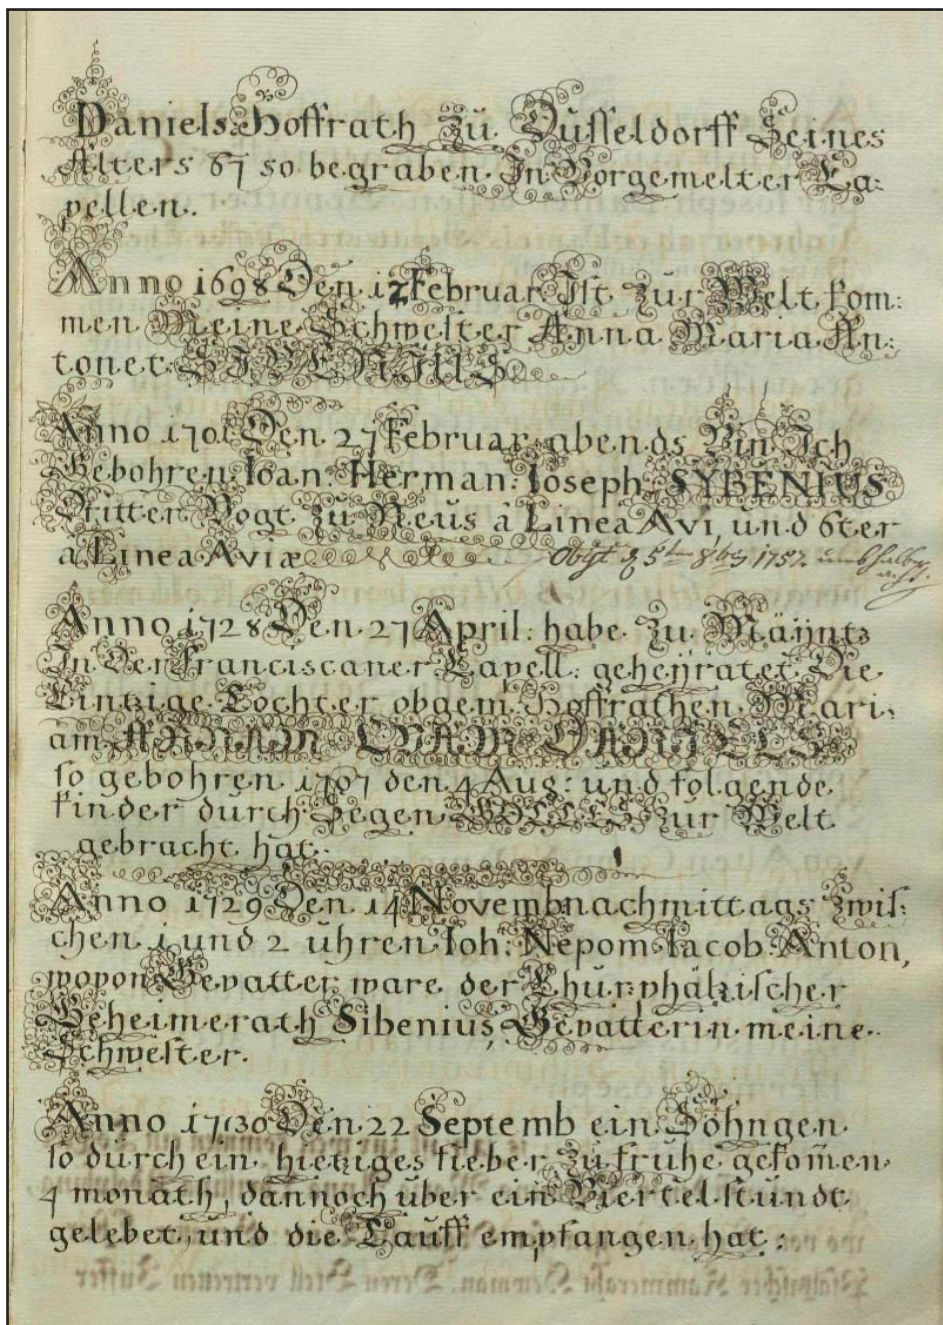 Daniels Hoffrath Zu Dusseldorff Seines
Alters 67 so begraben In Vorgemelter Ca:
pellen.
Anno 1698 Den 12 Februar Ist Zur Welt kom:
men Meine Schwester Anna Maria An:
tonet SIBENIUS
Anno 1701 Den 27 Februar abends Bin Ich
Gebohren Ioan: Herman: Ioseph: SYBENIUS
Dritter Vogt Zu Neus à Linea Avi, und 6ter
a Linea Aviæ Obijt 5ten 8bris 1757.
Anno 1728 Den 27 April: habe Zu Mäyntz
In Der Franciscaner Capell: geheÿratet Die
Eintzige Tochter obgem: Hoffrathen Mari:
am ANNAM EVAM DANIELS
so gebohren 1707 den 4 Aug: und folgende
kinder durch Segen GOTTES Zur Welt
gebracht hat.
Anno 1729 Den 14 Novemb nachmittags Zwis:
chen 1 und 2 uhren Ioh: Nepom Iacob: Anton,
wovon Gevatter ware der Chur:phältzischer
Geheimerath Sibenius, Gevatterin meine
Schwester.
Anno 1730 Den 22 Septemb ein Söhngen
so durch ein hietziges fieber zu fruhe gekom̃en
4 monath, dannoch uber ein Viertel stundt
gelebet, und die Tauff empfangen hat: